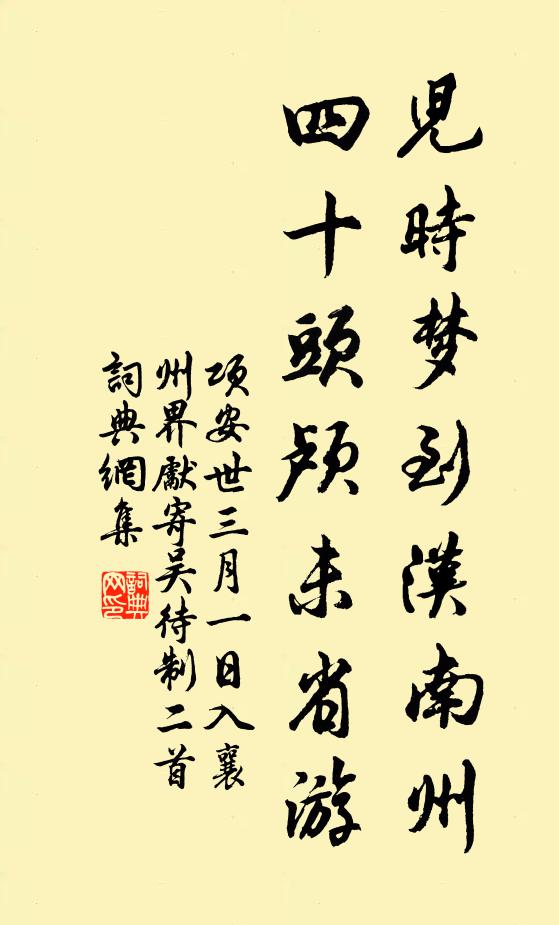 兒時梦到漢南州
四十頭顱未省游
項安世三月一日入襄
州界獻寄吴待制二首
詞典網集
詞典网印